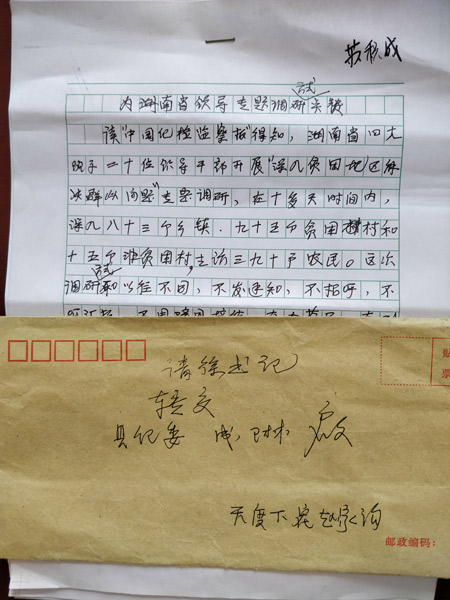 苏积成
试
为湖南省领导专题调研点赞
读"中国纪检监察报"得知，湖南省四大
班子二十位领导干部开展"深入贫困地区解
决群众问题"专题调研，在十多天时间内，
深入八十三个乡镇、九十五个贫困村和
十五个非贫困村，走访三九十户农民。这次
调研和以往不同，不发通知，不招呼，不
请徐书记
转交
县纪委 启
天度下
贴
票
邮政编码：